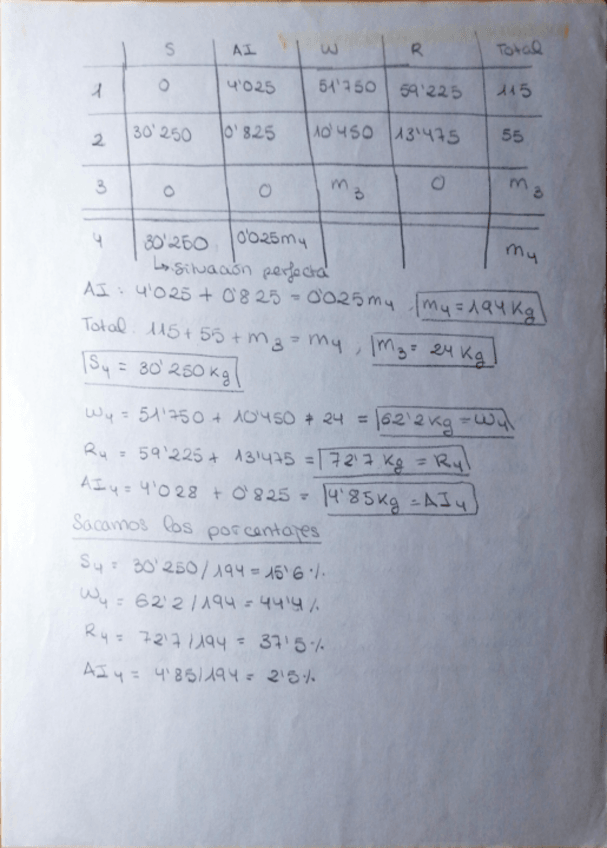 S AI W R Total
1 0 4'025 51'750 59'225 115
2 30'250 0'825 10'450 13'475 55
3 0 0 m3 0 m3
4 30'250 0'025m4 m4
↳ Situación perfecta
AI: 4'025 + 0'825 = 0'025m4, m4 = 194 Kg
Total: 115 + 55 + m3 = m4, m3 = 24 Kg
S4 = 30'250 Kg
W4 = 51'750 + 10'450 + 24 = 62'2 Kg = W4
R4 = 59'225 + 13'475 = 72'7 Kg = R4
AI4 = 4'028 + 0'825 = 4'85 Kg = AI4
Sacamos los porcentajes
S4 = 30'250/194 = 15'6 %
W4 = 62'2/194 = 44'4 %
R4 = 72'7/194 = 37'5 %
AI4 = 4'85/194 = 2'5 %